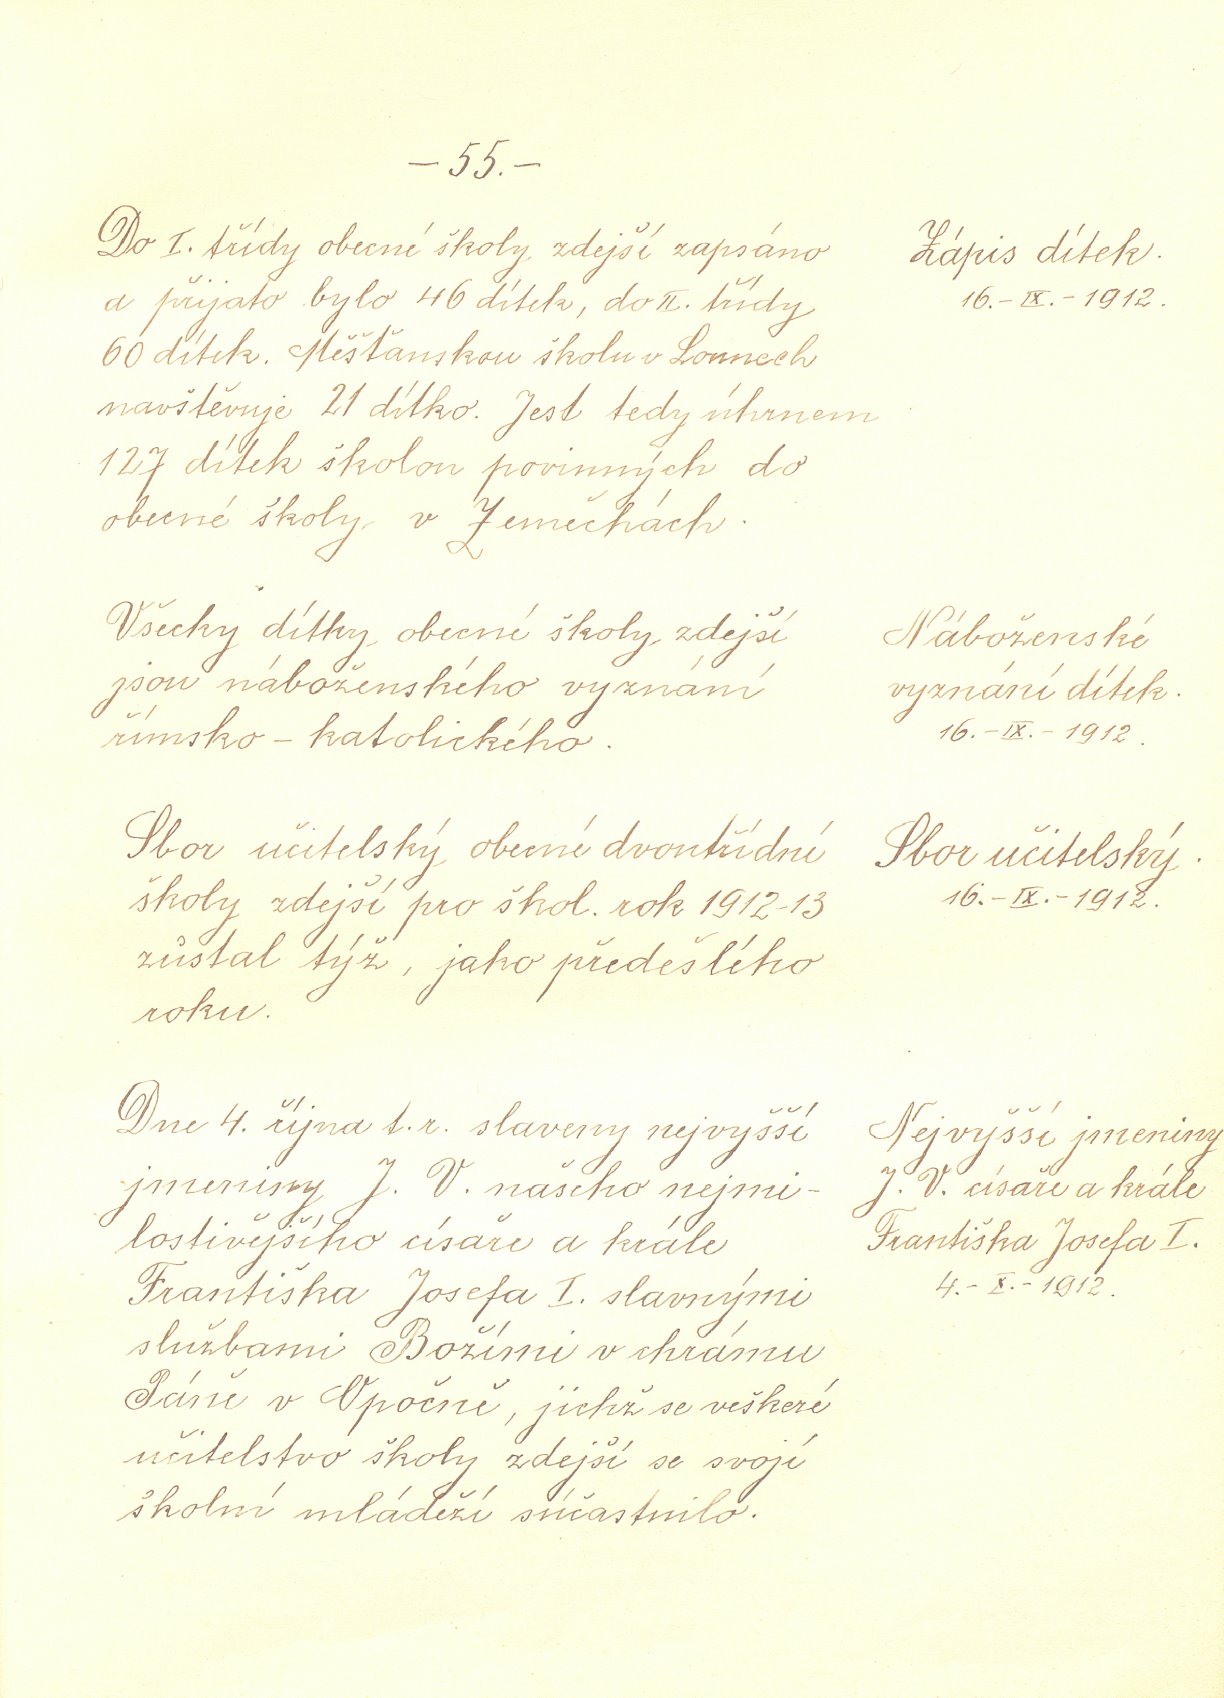 — 55. —
Do I. třídy obecné školy zdejší zapsáno
a přijato bylo 46 dítek, do II. třídy
60 dítek. Měšťanskou školu v Lounech
navštěvuje 21 dítko. Jest tedy úhrnem
127 dítek školou povinných do
obecné školy v Zeměchách.
Zápis dítek.
16. – IX. – 1912.
Všecky dítky obecné školy zdejší
jsou náboženského vyznání
římsko – katolického.
Náboženské
vyznání dítek.
16. – IX. – 1912.
Sbor učitelský obecné dvoutřídní
školy zdejší pro škol. rok 1912-13
zůstal týž, jako předešlého
roku.
Sbor učitelský.
16. – IX. – 1912.
Dne 4. října t. r. slaveny nejvyšší
jmeniny J. V. našeho nejmi-
lostivějšího císaře a krále
Františka Josefa I. slavnými
službami Božími v chrámu
Páně v Opočně, jichž se veškeré
učitelstvo školy zdejší se svojí
školní mládeží súčastnilo.
Nejvyšší jmeniny
J. V. císaře a krále
Františka Josefa I.
4. – X. – 1912.